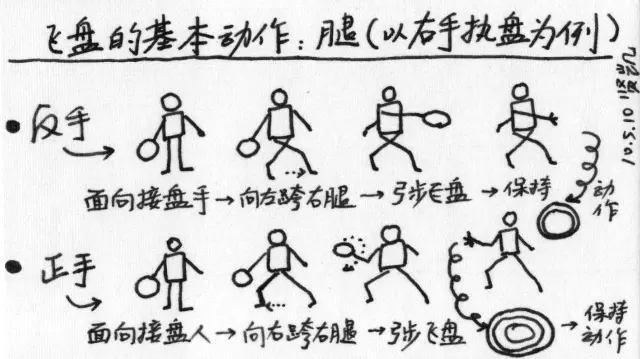 飞盘的基本动作：腿（以右手执盘为例）
反手
面向接盘手→向左跨右腿→引步飞盘→保持动作
正手
面向接盘人→向右跨右腿→引步飞盘→保持动作